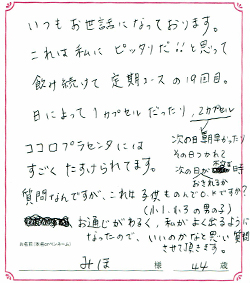 いつもお世話になっております。
これは私にピッタリだ!!と思って
飲み続けて定期コースの19回目。
日によって1カプセルだったり、2カプセル
次の日朝早かったり
その日つかれて
次の日が 時
おきれるか
ココロプラセンタには
すごくたすけられてます。
質問なんですが、これは子供ものんでO.Kですか?
(小1、小3の男の子)
お通じがわるく、私がよく出るように
なったので、いいのかなと思い質問
させて頂きます。
お名前(本名orペンネーム)
みほ 様 44歳